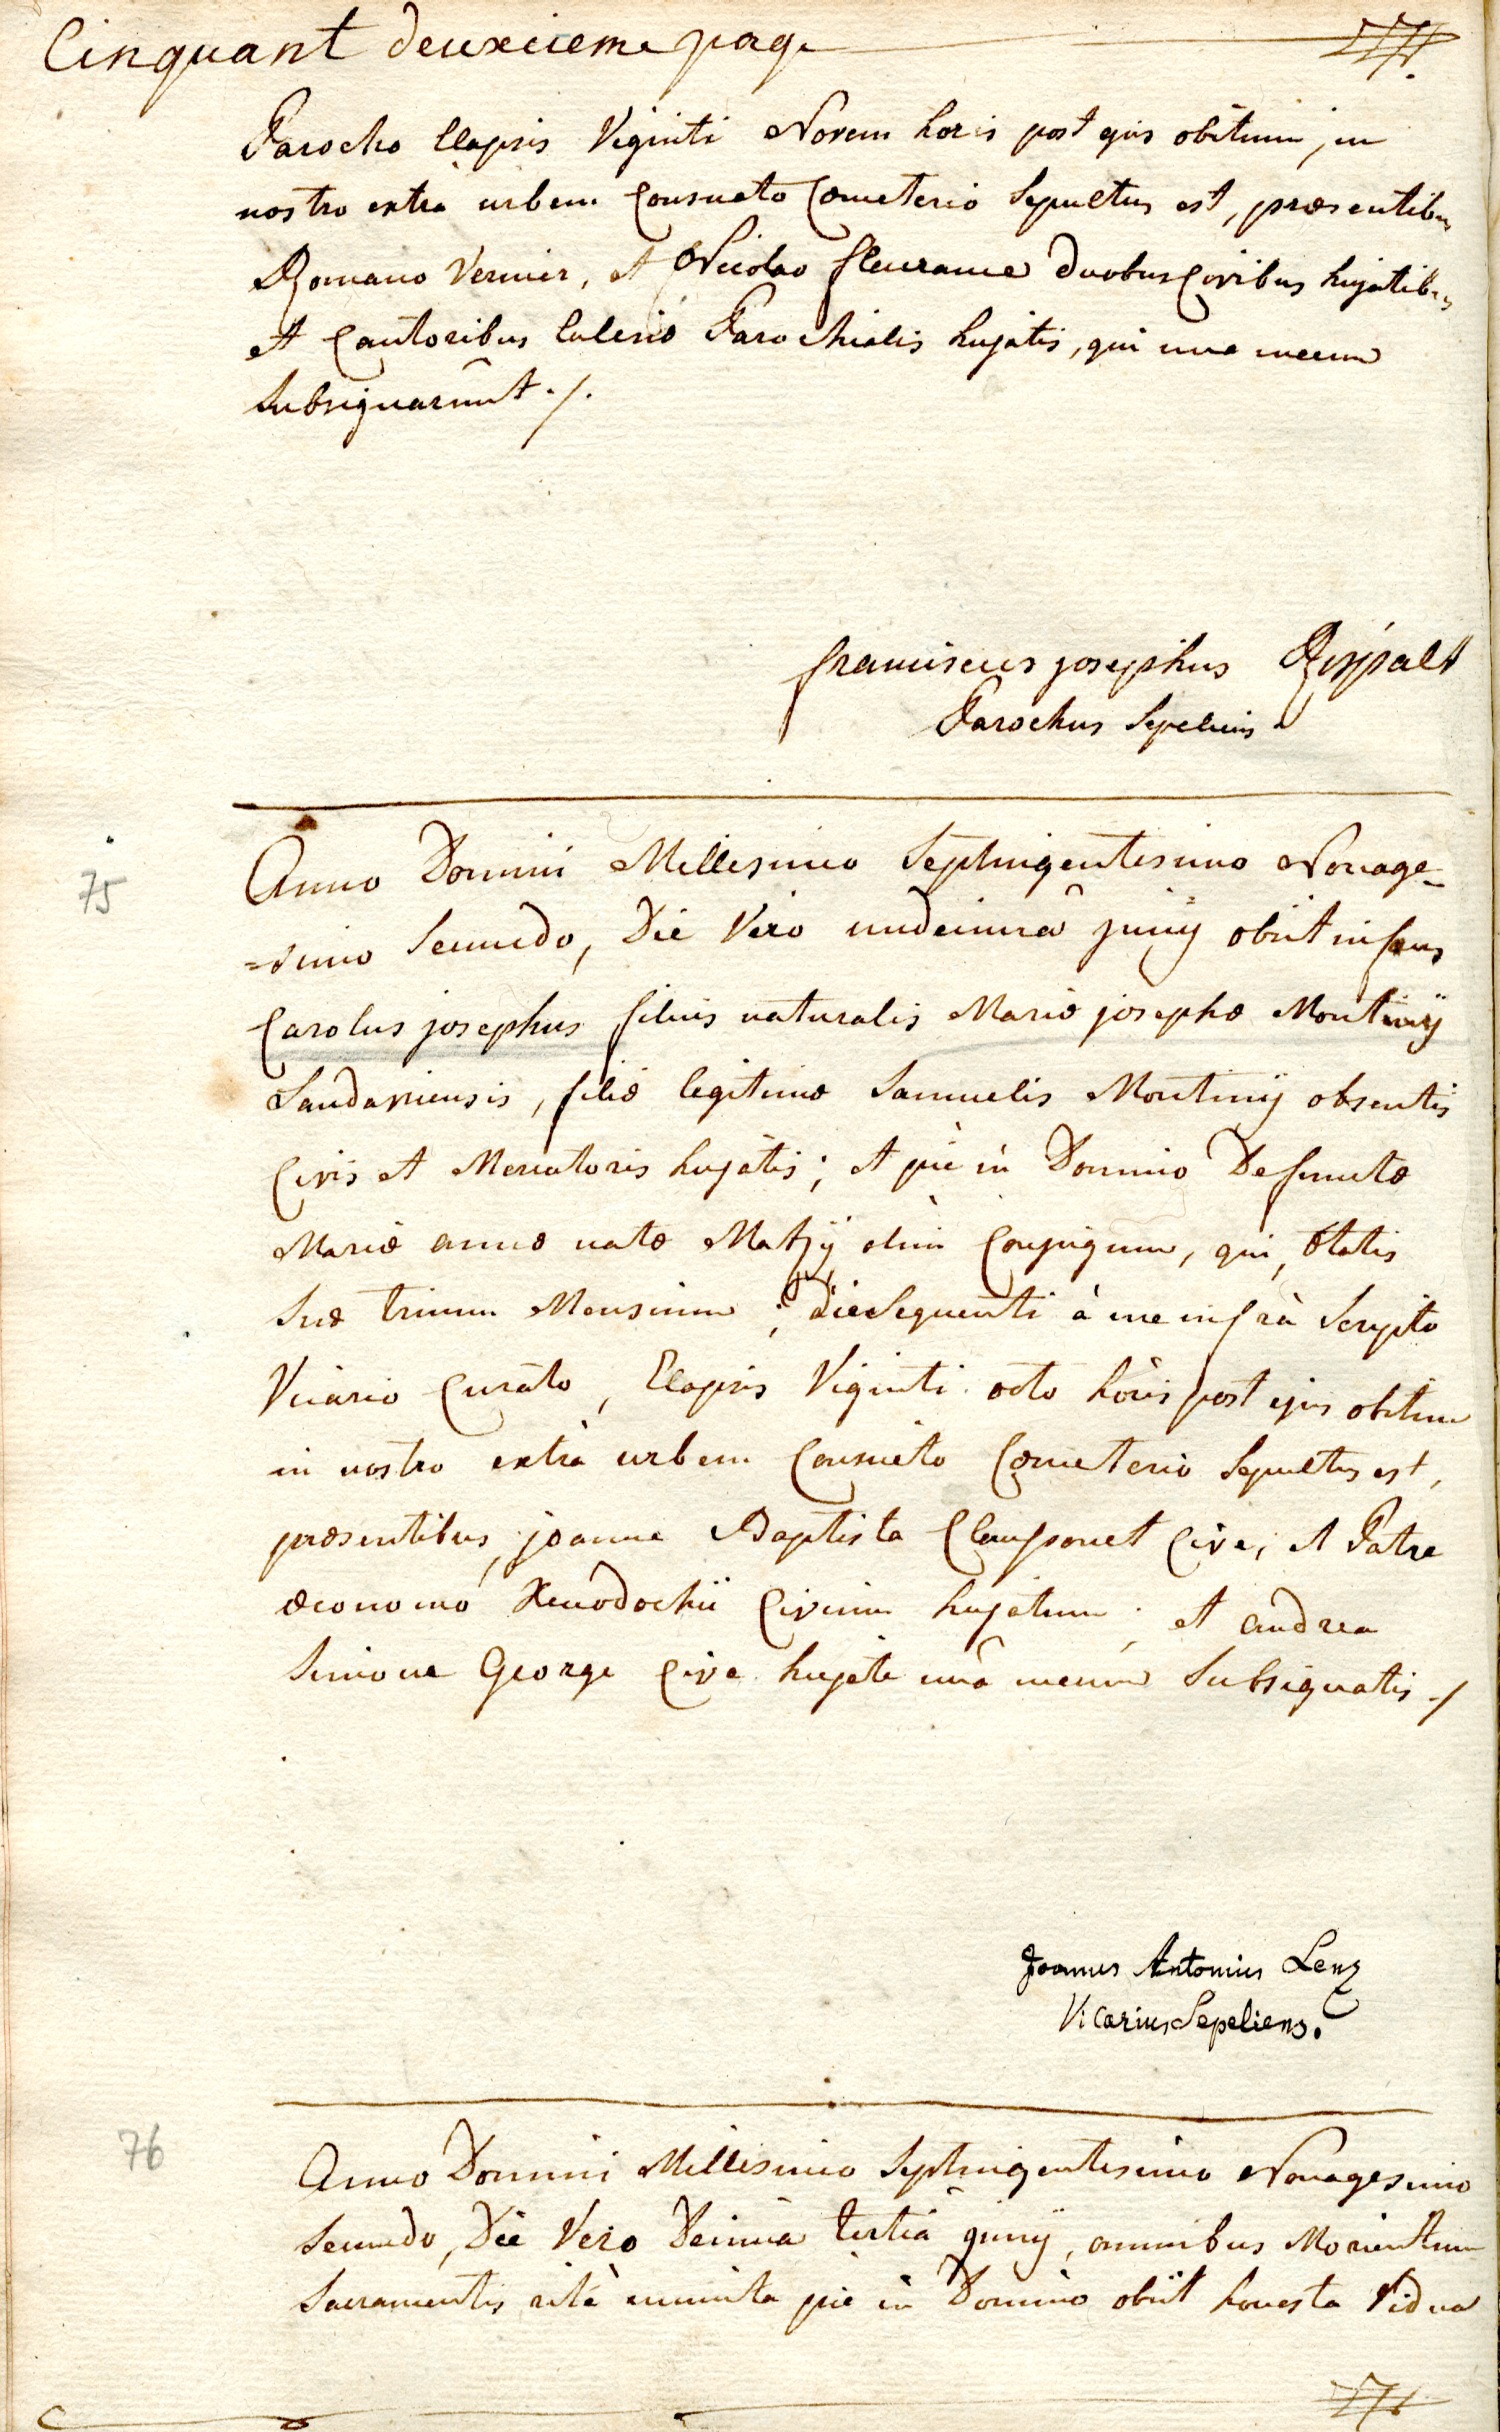 Cinquant deuxieme page
Parocho Elapsis Viginti Novem horis post ejus obitum, in
nostro extrà urbem Consueto Cœmeterio Sepultus est, præsentibus
Romano Vernier, et Nicolao fleurance duobus Civibus hujatibus
et Cantoribus Eclesiæ Parochialis hujatis, qui una mecum
Subsignarûnt ./.
franciscus josephus Rispalt
Parochus Sepeliens
75
Anno Domini Millesimo Septingentesimo Nonage-
=simo Secundo, Die Vero undecimâ junij obiit infans
Carolus josephus filius naturalis Mariæ josephæ Montinij
Landaviensis, filiæ legitimæ Samuelis Montinij absentis
Civis et Mercatoris hujatis; et piè in Domino Defunctæ
Mariæ annæ natæ Matzij olim Conjugum, qui, ætatis
suæ trium Mensium; die Sequenti à me infrà Scripto
Vicario Curato, Elapsis Viginti octo horis post ejus obitum
in nostro extrà urbem Consueto Cœmeterio Sepultus est,
præsentibus, joanne Baptista Clausonet Cive, et Patre
œconomo Xenodochii Civium hujatum; et andrea
Simone George Cive hujate unâ mecum Subsignatis ./
Joannes Antonius Lenz
Vicarius Sepeliens.
76
Anno Domini Millesimo Septingentesimo Nonagesimo
Secundo, Die Vero Decima tertiâ junij, omnibus Morientium
Sacramentis ritè munita piè in Domino obiit honesta Vidua